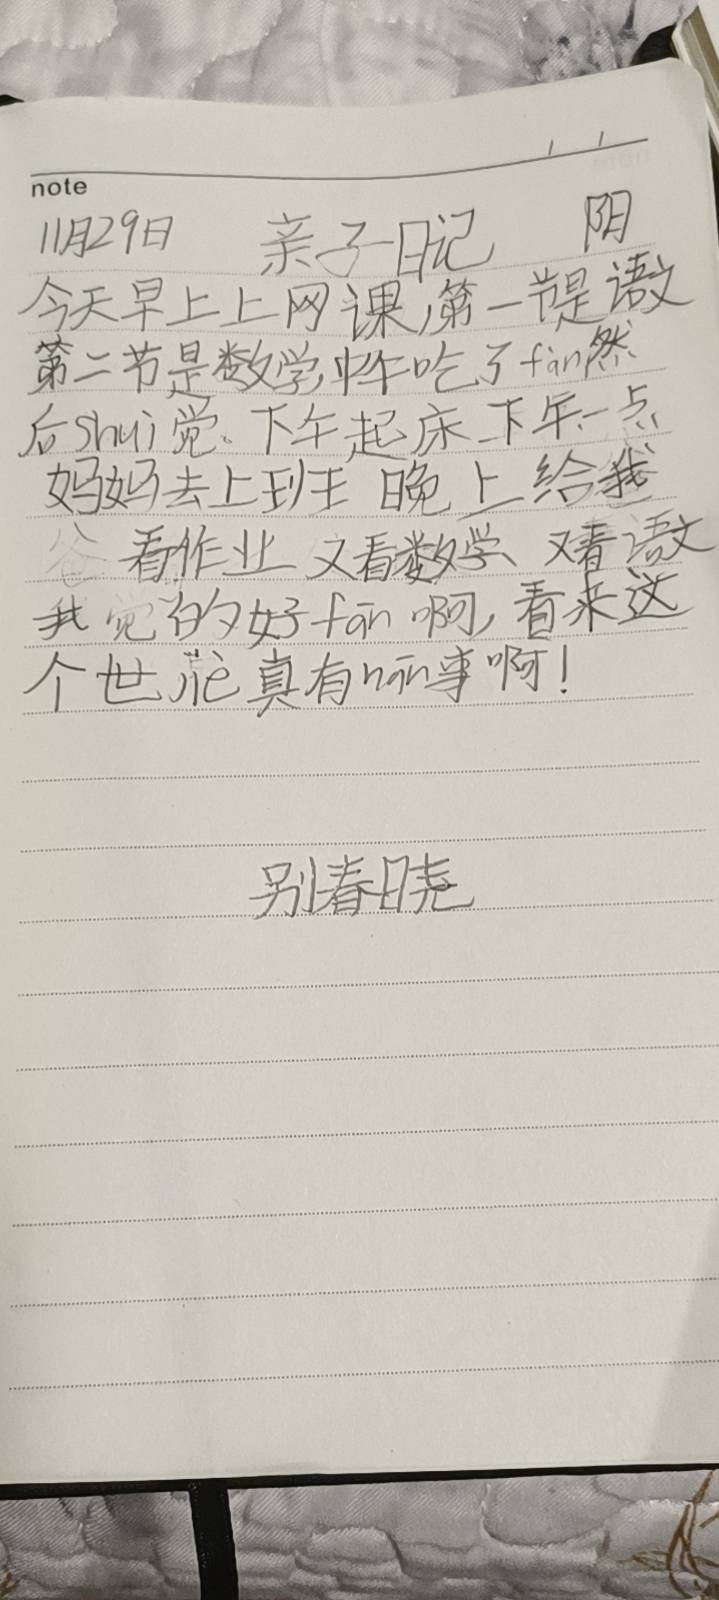 note
11月29日 亲子日记 阴
今天早上上网课,第一节是语文
第二节是数学,中午吃了fàn然
后shuì觉、下午起床 下午一点
妈妈去上班 晚上给我
爸 看作业 又看数学、又看语文
我觉的好fán啊,看来这
个世 真有nán事啊!
别春晓